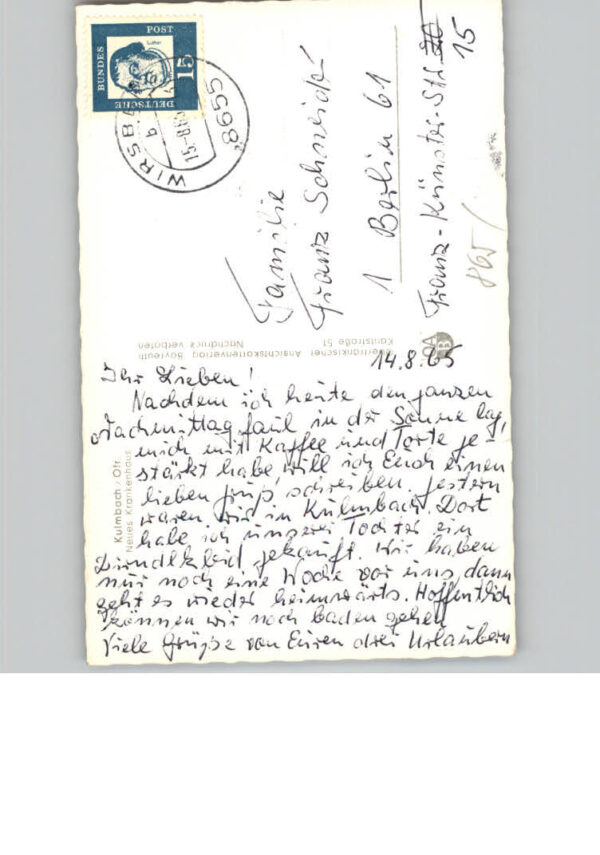 14.8.65
Ihr Lieben!
Nachdem ich heute den ganzen
Nachmittag faul in der Sonne lag,
mich mit Kaffee und Torte ge-
stärkt habe, will ich Euch einen
lieben Gruß schreiben. Gestern
waren wir in Kulmbach. Dort
habe ich unserer Tochter ein
Dirndlkleid gekauft. Wir haben
nur noch eine Woche vor uns dann
geht es wieder heimwärts. Hoffentlich
können wir noch baden gehen
Viele Grüße von Euren drei Urlaubern
Familie
Franz Schneider
1 Berlin 61
Franz-Künster-Str.
15
865/
DEUTSCHE
BUNDES
POST
Luther
15
8655 WIRSB
15-8.65
b
Kulmbach/Ofr.
Neues Krankenhaus
Oberfränkischer Ansichtskartenverlag Bayreuth
Kantstraße 51 Nachdruck verboten